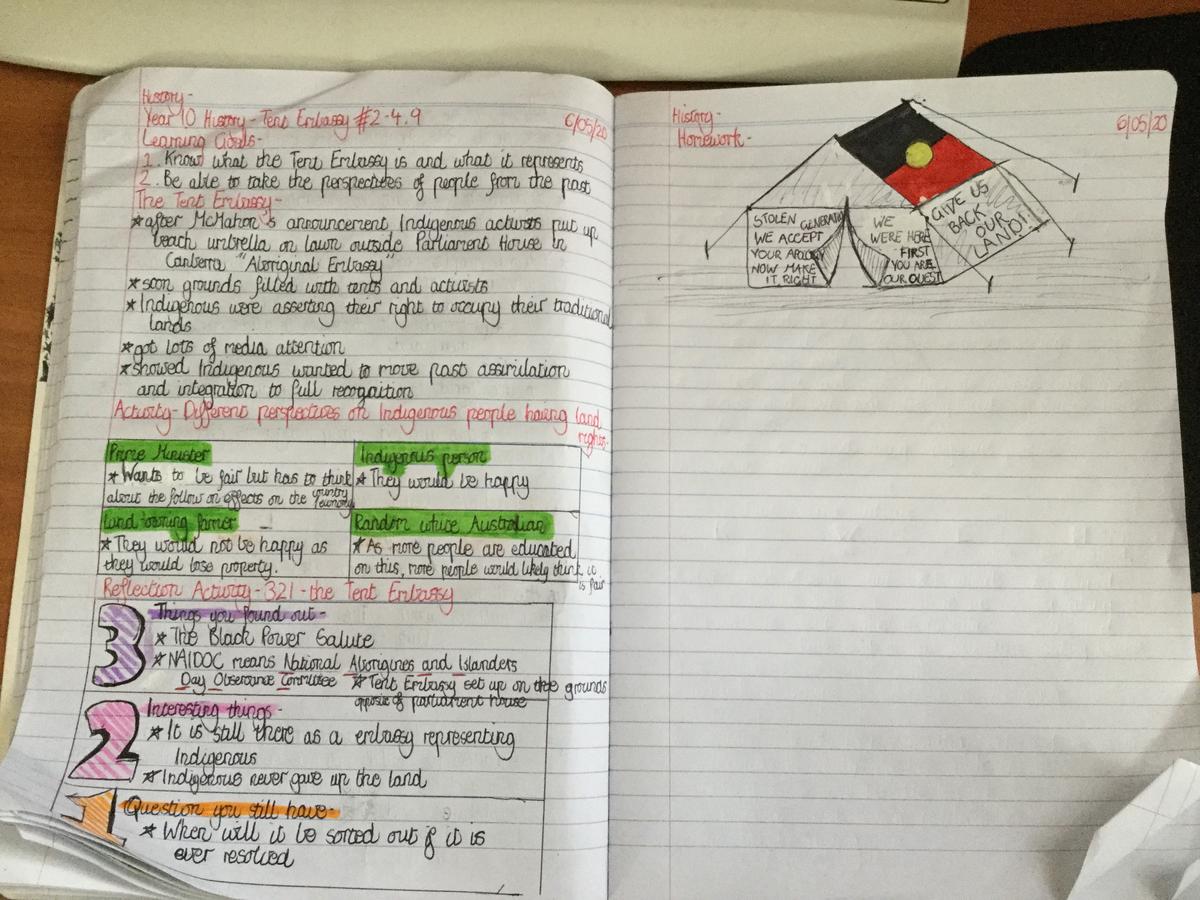 History-
Year 10 History- Tent Embassy #2-4.9
6/05/20
Learning Goals-
1. Know what the Tent Embassy is and what it represents
2. Be able to take the perspectives of people from the past
The Tent Embassy-
*after McMahon's announcement Indigenous activists put up
beach umbrella on lawn outside Parliament House in
Canberra "Aboriginal Embassy"
*soon grounds filled with tents and activists
*Indigenous were asserting their right to occupy their traditional
lands
*got lots of media attention
*showed Indigenous wanted to move past assimilation
and integration to full recognition
Activity- Different perspectives on Indigenous people having land
rights-
Prime Minister
*Wants to be fair but has to think
about the follow on effects on the country
economy
Indigenous person
*They would be happy
land owning farmer
*They would not be happy as
they would lose property.
Random white Australian
*As more people are educated
on this, more people would likely think it
is fair
Reflection Activity- 321- the Tent Embassy
3
Things you found out-
*The Black Power Salute
*NAIDOC means National Aborigines and Islanders
Day Observance Committee *Tent Embassy set up on the grounds
opposite of parliament house
2
Interesting things-
*It is still there as a embassy representing
Indigenous
*Indigenous never gave up the land
1
Question you still have-
*When will it be sorted out if it is
ever resolved
History-
Homework-
6/05/20
STOLEN GENERATION
WE ACCEPT
YOUR APOLOGY
NOW MAKE
IT RIGHT
WE
WERE HERE
FIRST
YOU ARE
OUR GUEST
GIVE US
BACK
OUR
LAND!